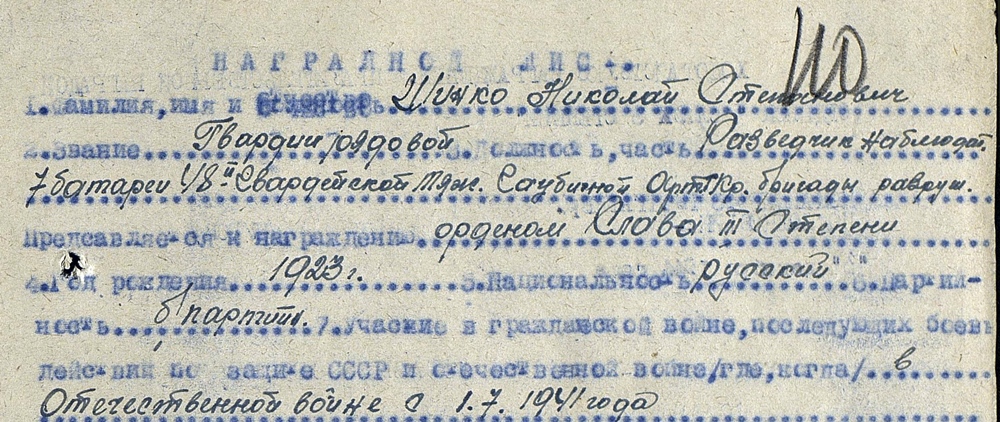 110
НАГРАДНОЙ ЛИС
1. Фамилия, имя и отчество Шинко Николай Степанович
2. Звание Гвардии рядовой 3. Должность, часть Разведчик наблюдат.
7 батареи 18й Гвардейской Тяж. Гаубичной Арт. Кр. бригады разруш.
Представляется к награждению орденом Слава III Степени
4. Год рождения 1923 г. 5. Национальность русский 6. Партий-
ность б/партийн. 7. Участие в гражданской войне, последующих боевы
действий по защите СССР и отечественной войне/где, когда/ в
Отечественной войне с 1.7.1941 года